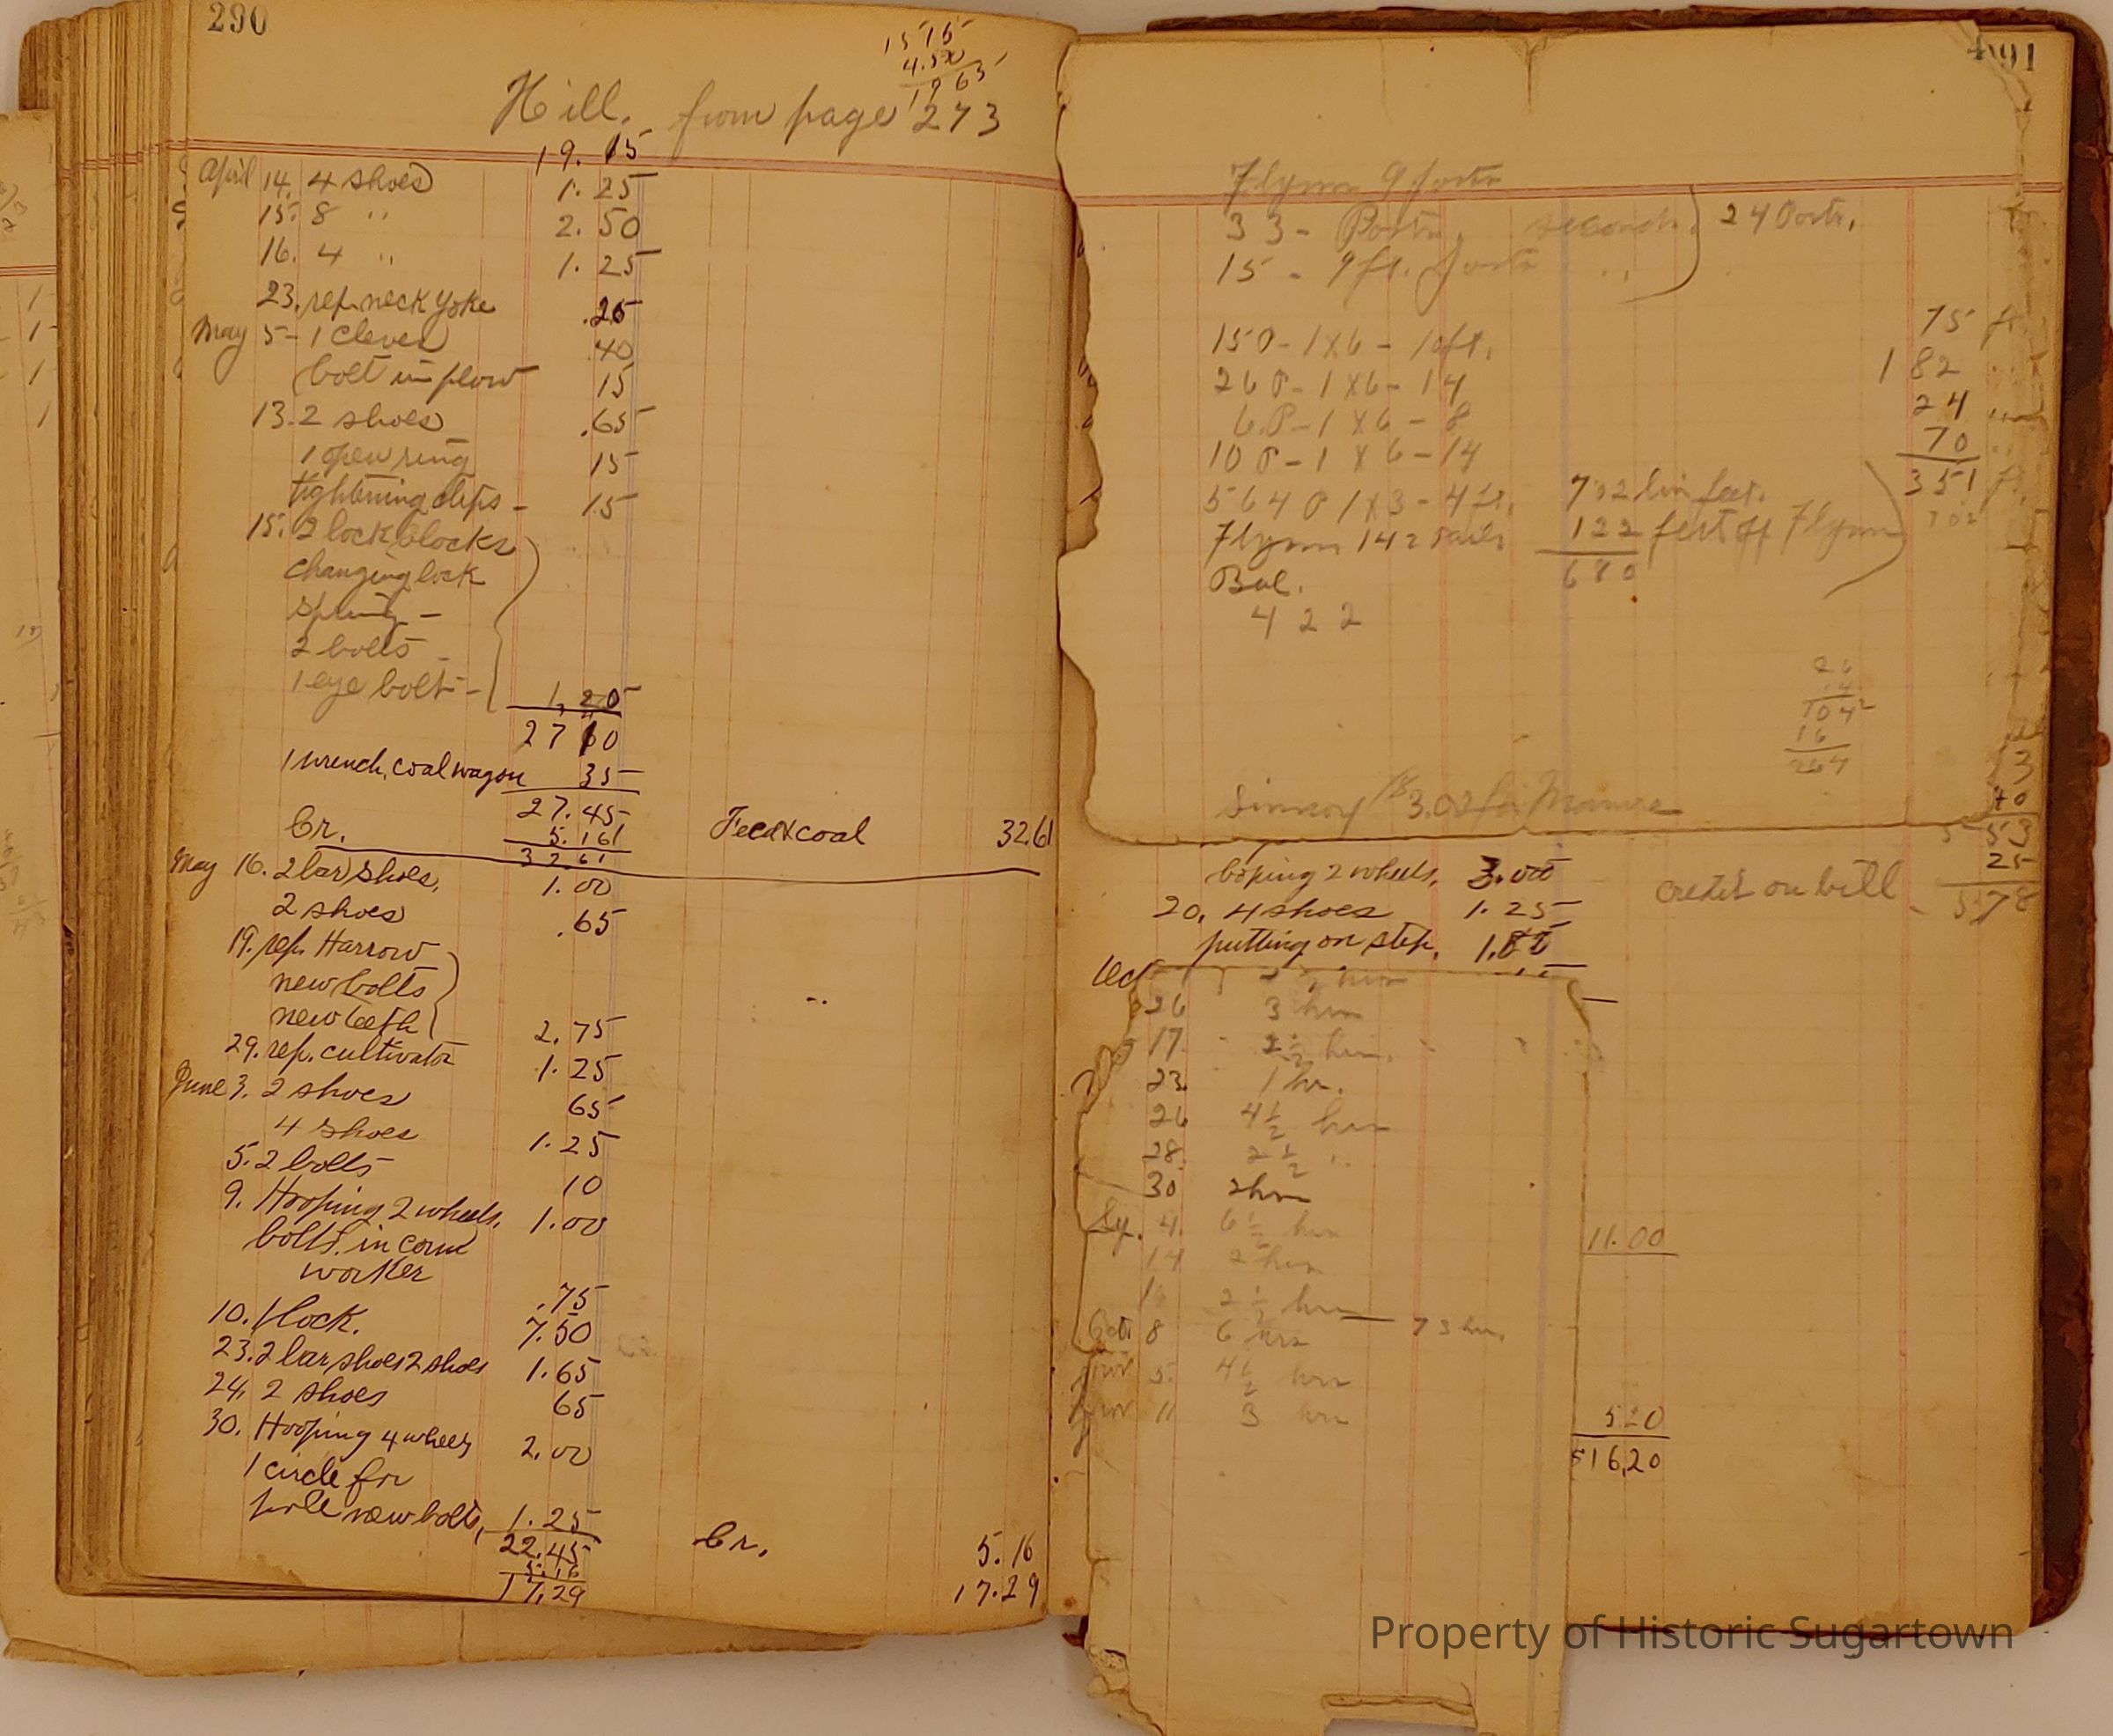 290
1575
4.50
1965
Hill. from page 273
19.15
April 14. 4 shoes 1.25
15. 8 " 2.50
16. 4 " 1.25
23. rep. neck yoke .25
May 5 - 1 cleves .40
bolt in plow 15
13. 2 shoes .65
1 open ring 15
tightning clips - 15
15. 2 lock blocks
changing lock
spring -
2 bolts -
1 eye bolt - 1.20
27 10
1 wrench, coal wagon 35
27.45
Cr. 5.16 Feed & coal 32.61
32 61
May 16. 2 bar shoes, 1.00
2 shoes .65
19. rep. Harrow
new bolts
new teeth 2.75
29. rep. cultivator 1.25
June 3. 2 shoes 65
4 shoes 1.25
5. 2 bolts 10
9. Hooping 2 wheels, 1.00
bolts in corn
worker .75
10. 1 lock. 7.50
23. 2 bar shoes 2 shoes 1.65
24. 2 shoes 65
30. Hooping 4 wheels 2.00
1 circle for
pole new bolts, 1.25
22.45 Cr. 5.16
5.16
17.29 17.29
291
Flynn 9 posts
33 - Posts, second. 24 Posts.
15 - 9 ft. posts "
75 ft
150 - 1x6 - 10 ft.
182 "
26 P - 1x6 - 14
24
6 P - 1x6 - 8
70 "
10 P - 1 x 6 - 14
351 ft.
564 P 1x3 - 4 ft. 732 lin feet.
702
Flynn 142 rails 122 feet off Flynn
Bal. 610
422
26
14
104
16
264
3.02 for Manure
3
40
53
25
578
2 wheels, 3.00
credit on bill -
20, 4 shoes 1.25
putting on step,
Oct
26 3 hrs
17 2 1/2 hrs.
23. 1 hr.
26 4 1/2 hrs
28. 2 1/2 "
30 2 hrs
4. 6 1/2 hrs
11.00
14 2 hrs
2 1/2 hrs — 73 hrs
Oct 8 6 hrs
Nov 5. 4 1/2 hrs
Nov 11 3 hrs
5.20
$16.20
Property of Historic Sugartown